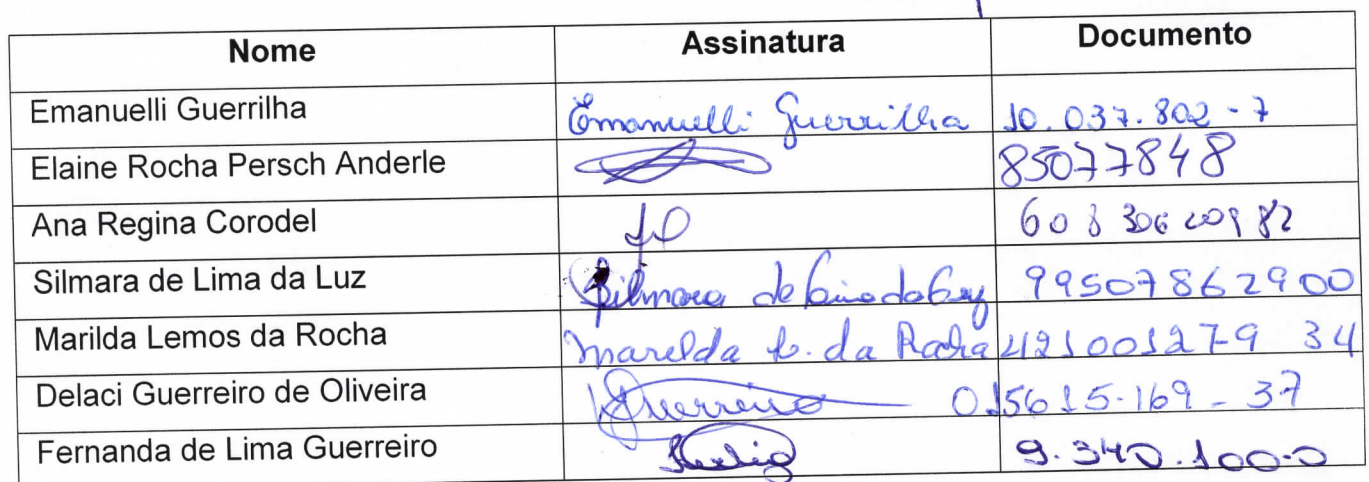 Nome Assinatura Documento
Emanuelli Guerrilha Emanuelli Guerrilha 10.037.802-7
Elaine Rocha Persch Anderle 85077848
Ana Regina Corodel
Silmara de Lima da Luz Silmara de Lima da Luz 99507862900
Marilda Lemos da Rocha Marilda L. da Rocha 421001279 34
Delaci Guerreiro de Oliveira Guerreiro 015615.169-37
Fernanda de Lima Guerreiro 9.340.100-0